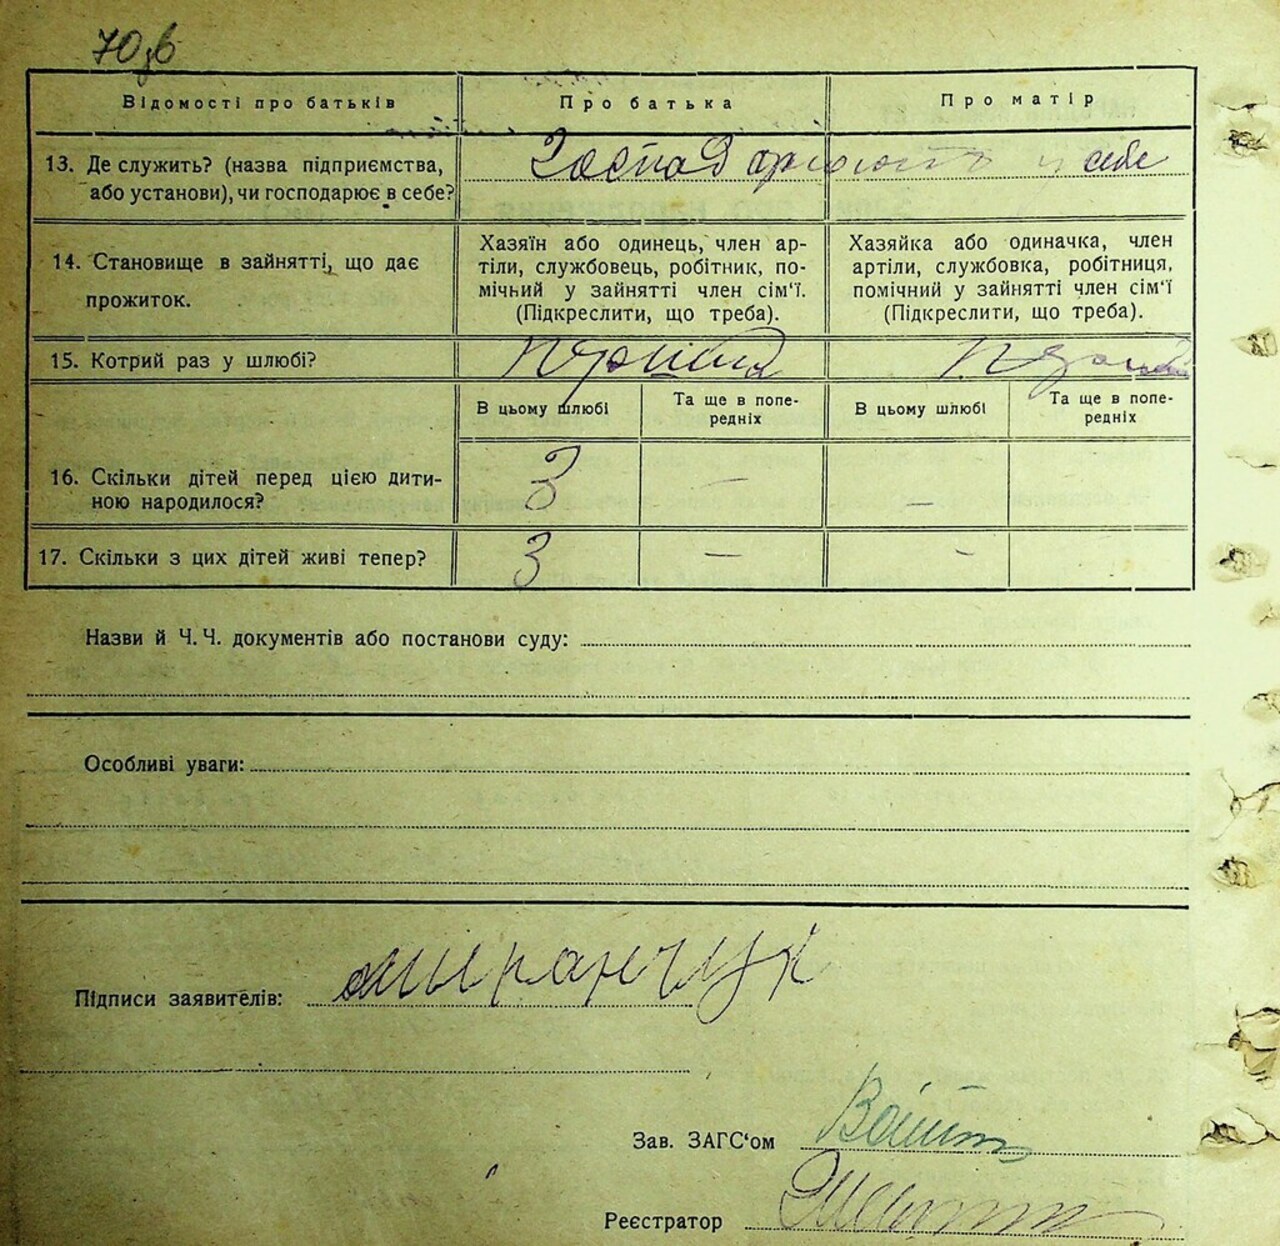 70зв
Відомості про батьків
Про батька
Про матір
13. Де служить? (назва підприємства, або установи), чи господарює в себе?
Господарюють у себе
14. Становище в зайнятті, що дає прожиток.
Хазяїн або одинець, член артіли, службовець, робітник, помічний у зайнятті член сім'ї. (Підкреслити, що треба).
Хазяйка або одиначка, член артіли, службовка, робітниця, помічний у зайнятті член сім'ї (Підкреслити, що треба).
15. Котрий раз у шлюбі?
В цьому шлюбі
Та ще в попередніх
В цьому шлюбі
Та ще в попередніх
16. Скільки дітей перед цією дитиною народилося?
3 — —
17. Скільки з цих дітей живі тепер?
3 — -
Назви й Ч. Ч. документів або постанови суду:
Особливі уваги:
Підписи заявителів: Миранчук
Зав. ЗАГС'ом
Реєстратор